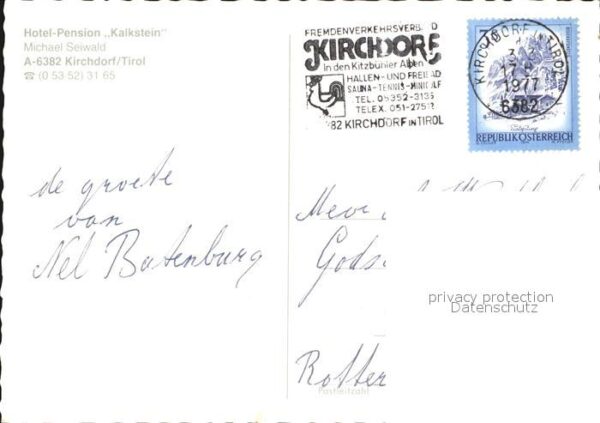 Hotel-Pension „Kalkstein"
Michael Seiwald
A-6382 Kirchdorf/Tirol
☎ (0 53 52) 31 65
FREMDENVERKEHRSVERB D
KIRCHDORF
in den Kitzbühler Alpen
HALLEN- UND FREIBAD
SAUNA-TENNIS-MINIGOLF
TEL. 05352-3136
TELEX. 051-275
82 KIRCHDORF IN TIROL
KIRCHDORF IN TIROL
1977
6382
REPUBLIK ÖSTERREICH
de groete
van
Nel Batenburg
Mev
Gods
Rotter
Postleitzahl
privacy protection
Datenschutz